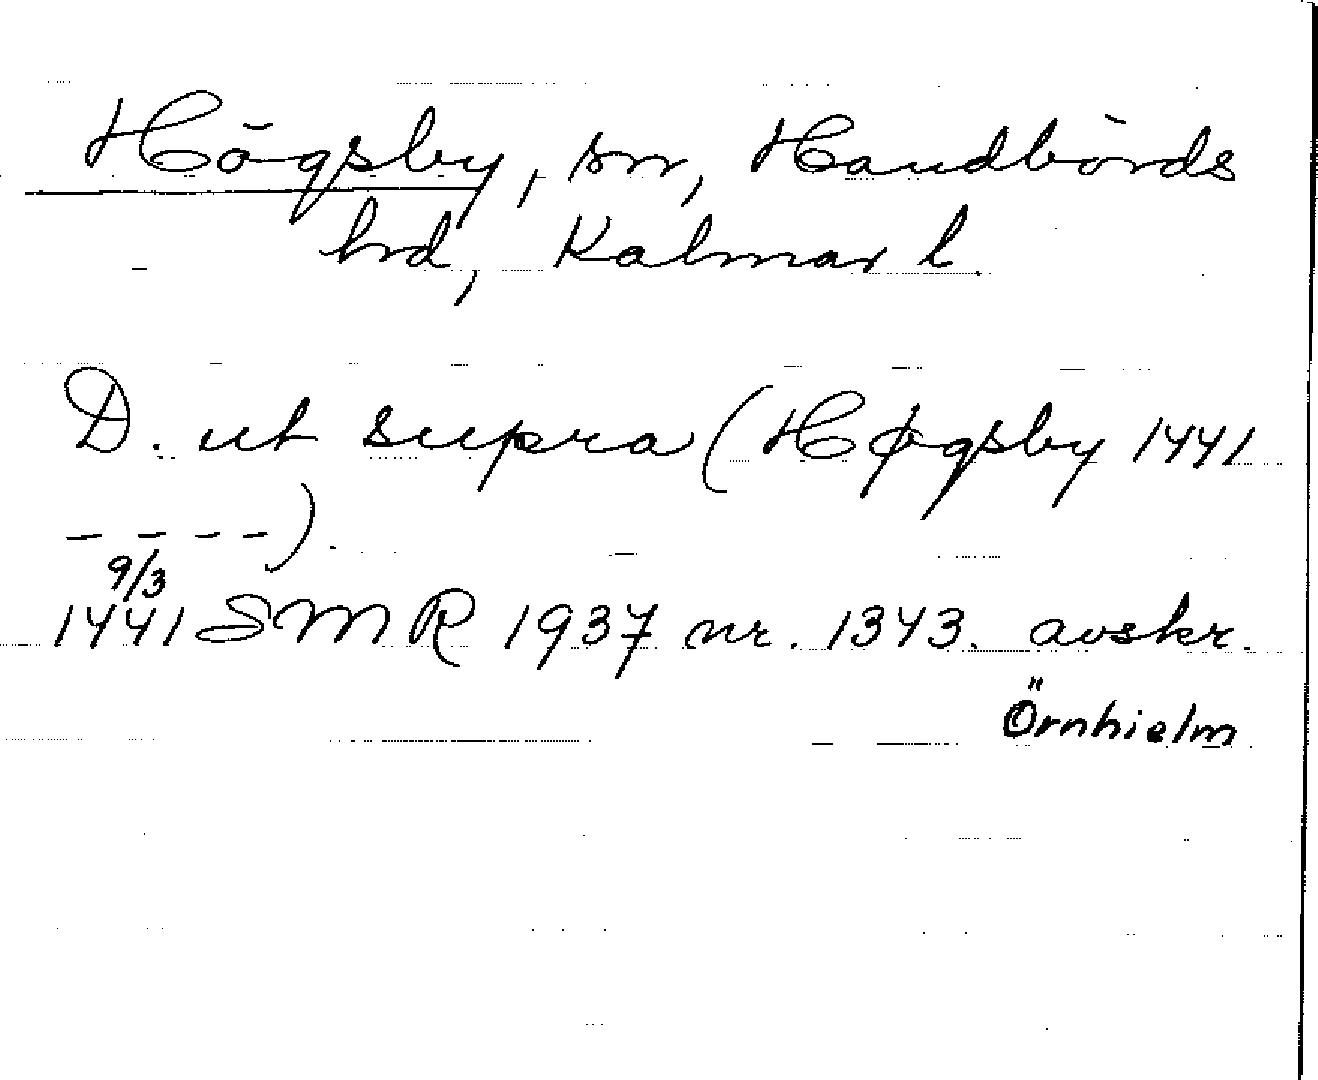 Högsby, sn, Handbörds
hrd, Kalmar l.
D. ut supra (Høgsby 1441
- - - -).
9/3
1441 SMR 1937 nr. 1343. avskr.
Örnhielm